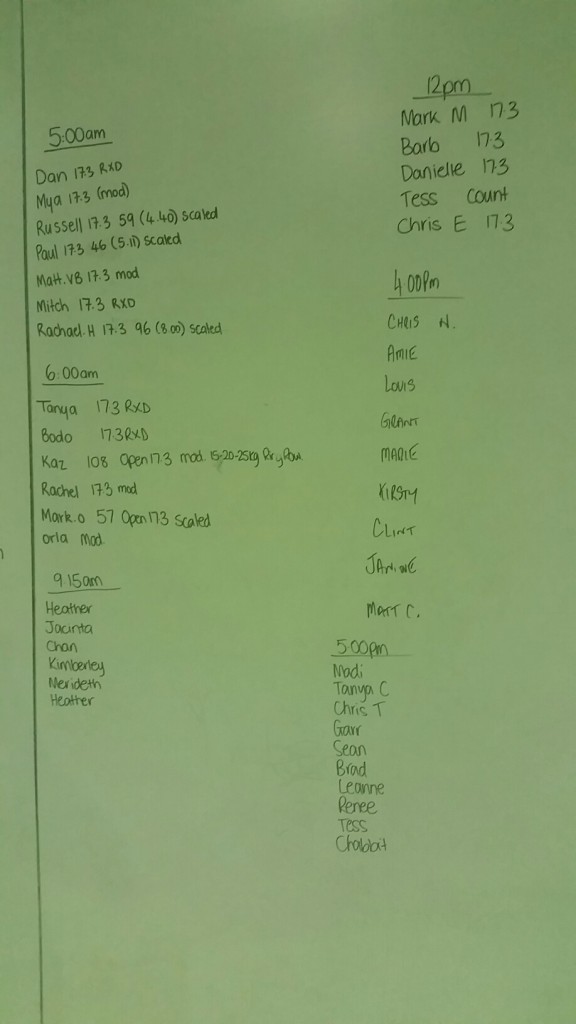 5:00am
Dan 17.3 RXD
Mya 17.3 (mod)
Russell 17.3 59 (4.40) scaled
Paul 17.3 46 (5.11) scaled
Matt.VB 17.3 mod
Mitch 17.3 RXD
Rachael.H 17.3 96 (8.00) scaled
6:00am
Tanya 17.3 RXD
Bodo 17.3 RXD
Kaz 108 Open 17.3 mod. 15-20-25kg
Rachel 17.3 mod
Mark.O 57 Open 17.3 Scaled
Orla Mod.
9.15am
Heather
Jacinta
Chan
Kimberley
Merideth
Heather
12pm
Mark M 17.3
Barb 17.3
Danielle 17.3
Tess Count
Chris E 17.3
4.00pm
CHRIS N.
AMIE
LOUIS
GRANT
MARIE
KIRSTY
CLINT
JANINE
MATT C.
5:00pm
Madi
Tanya C
Chris T
Garr
Sean
Brad
Leanne
Renee
Tess